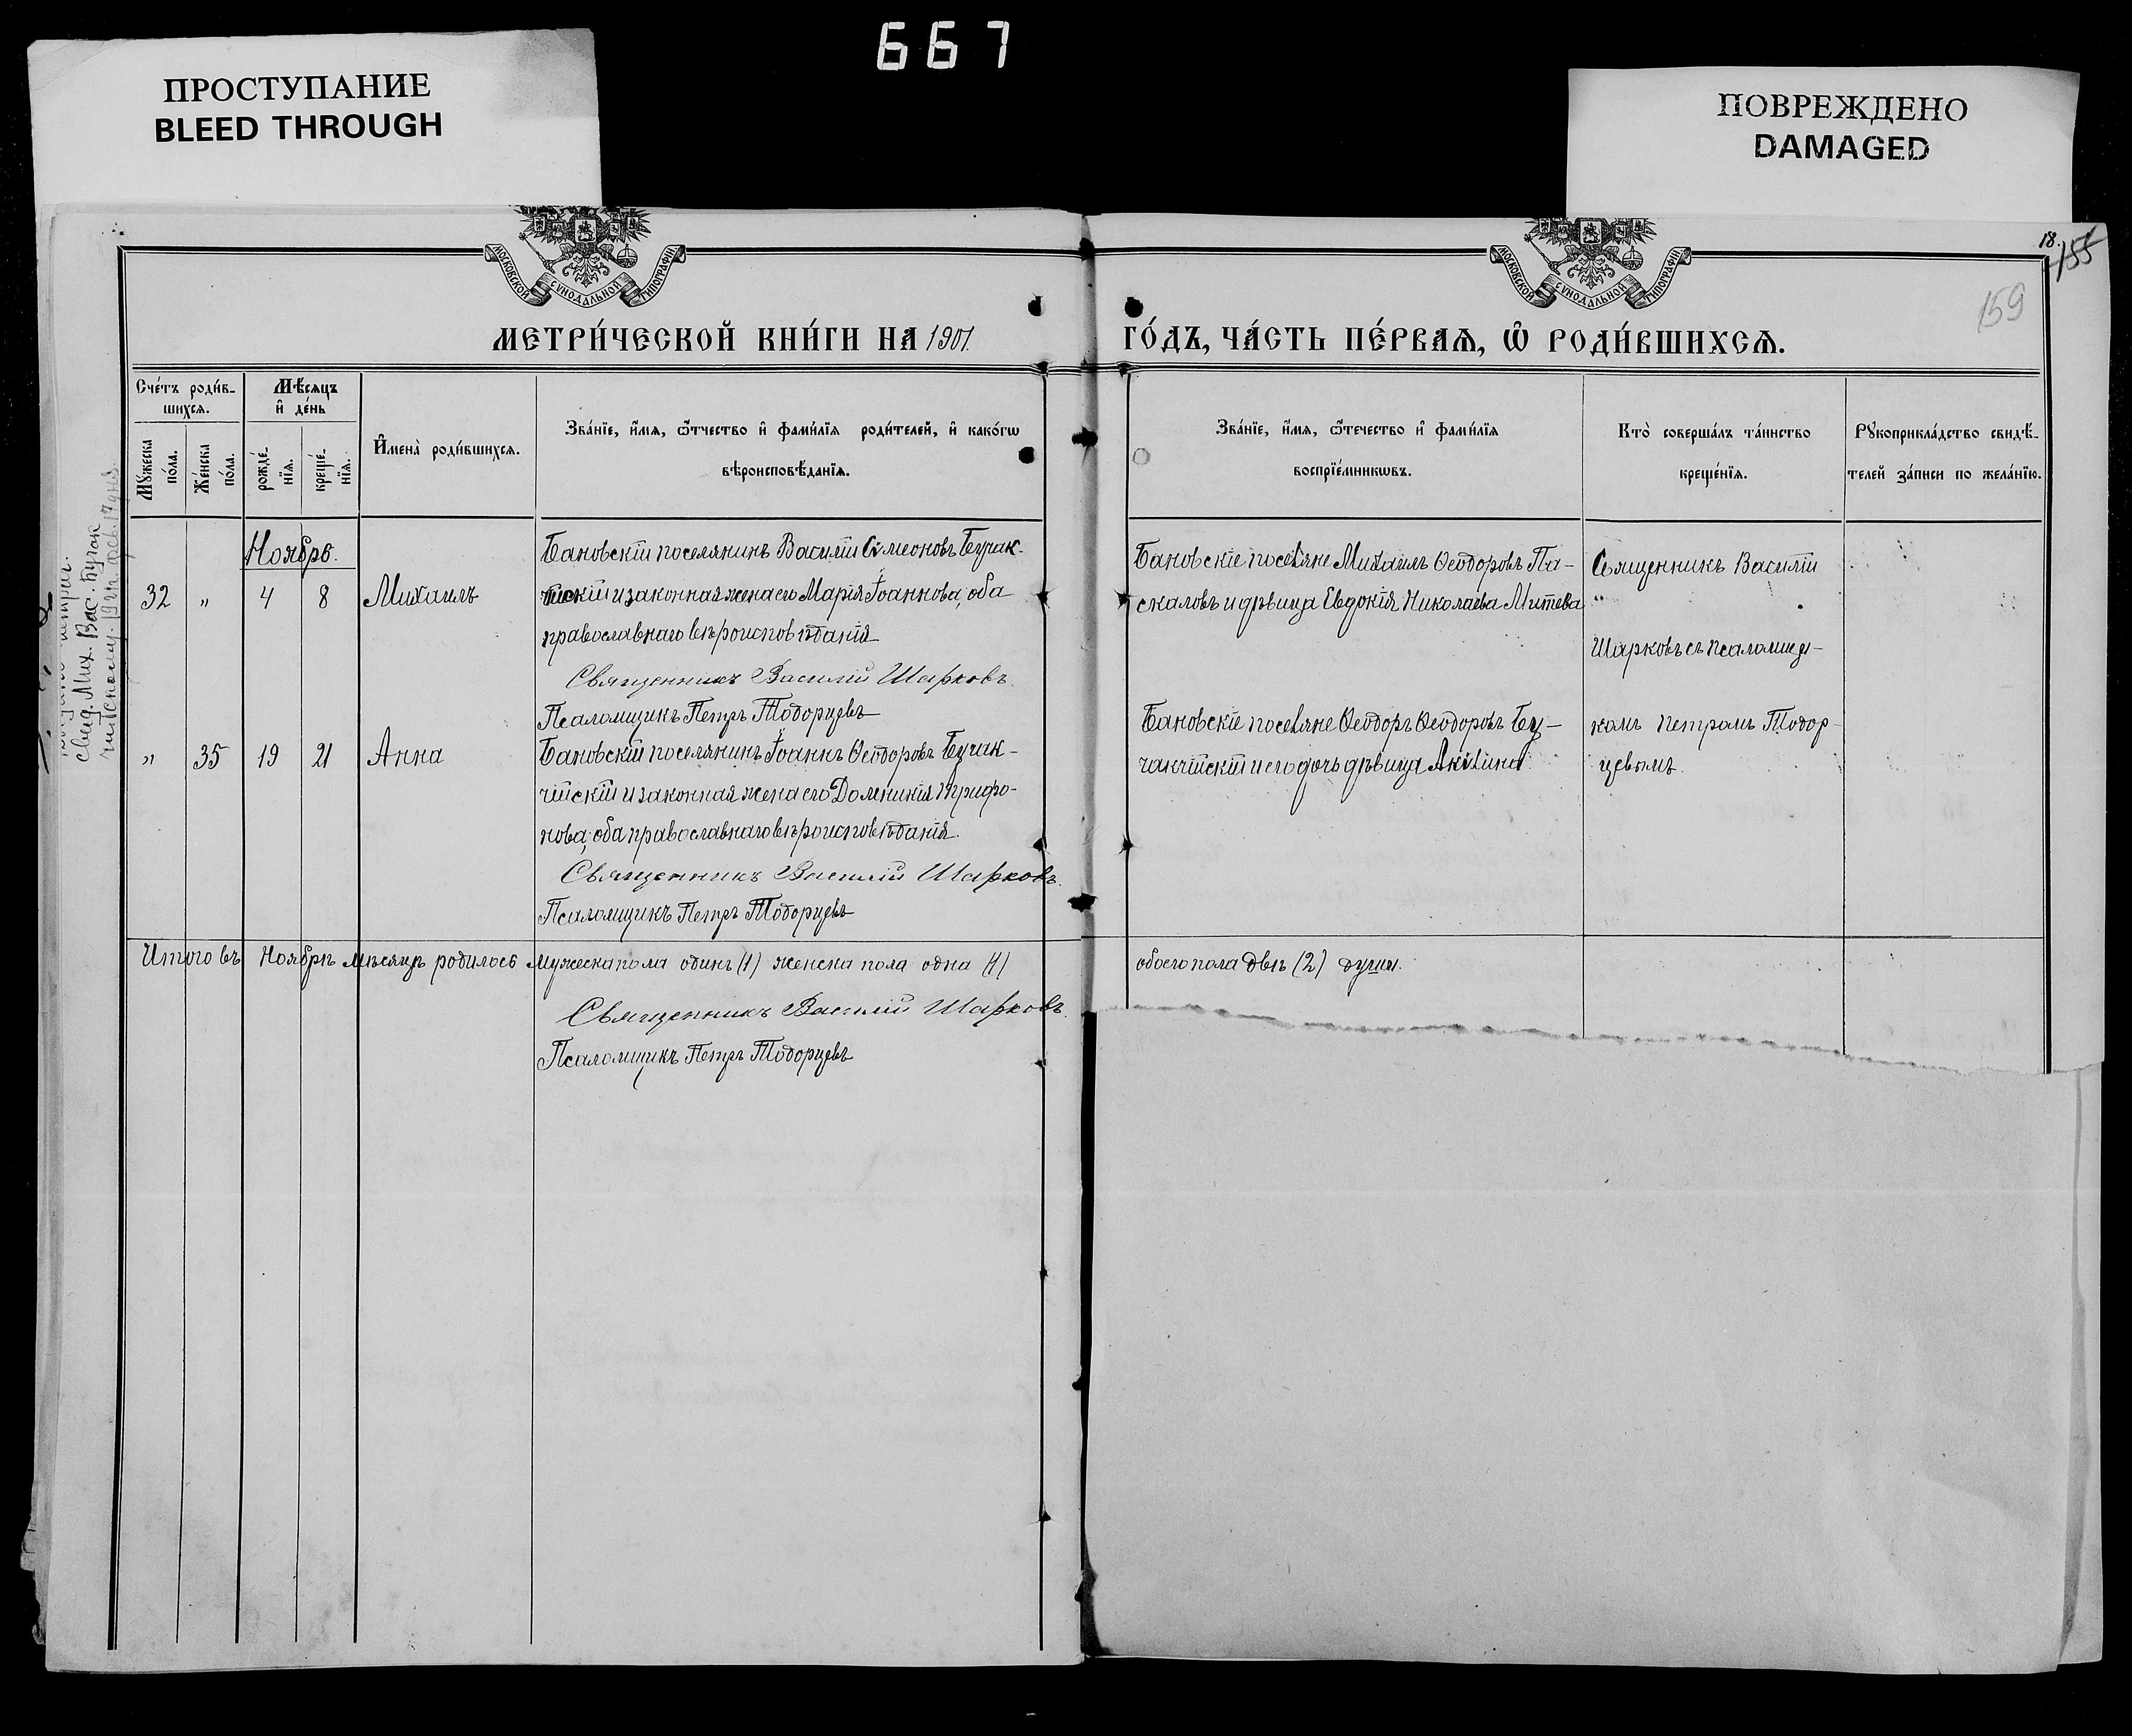 667
ПРОСТУПАНИЕ
BLEED THROUGH
ПОВРЕЖДЕНО
DAMAGED
МОСКОВСКОЙ СѴНОДАЛЬНОЙ ТИПОГРАФІИ
МОСКОВСКОЙ СѴНОДАЛЬНОЙ ТИПОГРАФІИ
18.
155
159
МЕТРИ́ЧЕСКОЙ КНИ́ГИ НА 1901.
ГО́ДЪ, ЧА́СТЬ ПЕ́РВАѦ, Ѡ҆ РОДИ́ВШИХСѦ.
Сче́тъ роди́в-
шихсѧ.
Мꙋжеска по́ла.
Же́нска по́ла.
Мѣ́сѧцъ
и҆ де́нь
рожде́-
нїѧ.
креще́-
нїѧ.
И҆мена̀ роди́вшихсѧ.
Зва́нїе, и҆́мѧ, ѻ҆́тчество и҆ фами́лїѧ роди́телей, и҆ како́гѡ
вѣроисповѣ́данїѧ.
Зва́нїе, и҆́мѧ, ѻ҆те́чество и҆ фами́лїѧ
воспрїе́мникѡвъ.
Кто̀ соверша́лъ та́инство
креще́нїѧ.
Рꙋкоприкла́дство свидѣ́-
телей за́писи по жела́нїю.
Ноябрь.
32 „ 4 8 Михаилъ
Бановскій поселянинъ Василій Сѵмеоновъ Бучак-
чійскій и законная жена его Марія Іоаннова, оба
православнаго вѣроисповѣданія
Священникъ Василій Шарковъ.
Псаломщикъ Петръ Тодорцевъ
Бановскіе поселяне Михаилъ Ѳеодоровъ Па-
скаловъ и дѣвица Евдокія Николаева Митева
Священникъ Василій
Шарковъ съ псаломщи-
комъ Петромъ Тодор-
цевымъ.
„ 35 19 21 Анна
Бановскій поселянинъ Іоаннъ Ѳеодоровъ Бучак-
чійскій и законная жена его Доменикія Трифо-
нова, оба православнаго вѣроисповѣданія.
Священникъ Василій Шарковъ.
Псаломщикъ Петръ Тодорцевъ
Бановскіе поселяне Ѳеодоръ Ѳеодоровъ Бу-
чакчійскій и его дочь дѣвица Акилина.
Итого въ Ноябрѣ мѣсяцѣ родилось мужеска пола одинъ (1) женска пола одна (1)
обоего пола двѣ (2) души.
Священникъ Василій Шарковъ.
Псаломщикъ Петръ Тодорцевъ
свид. Мих. Вас. Бучак